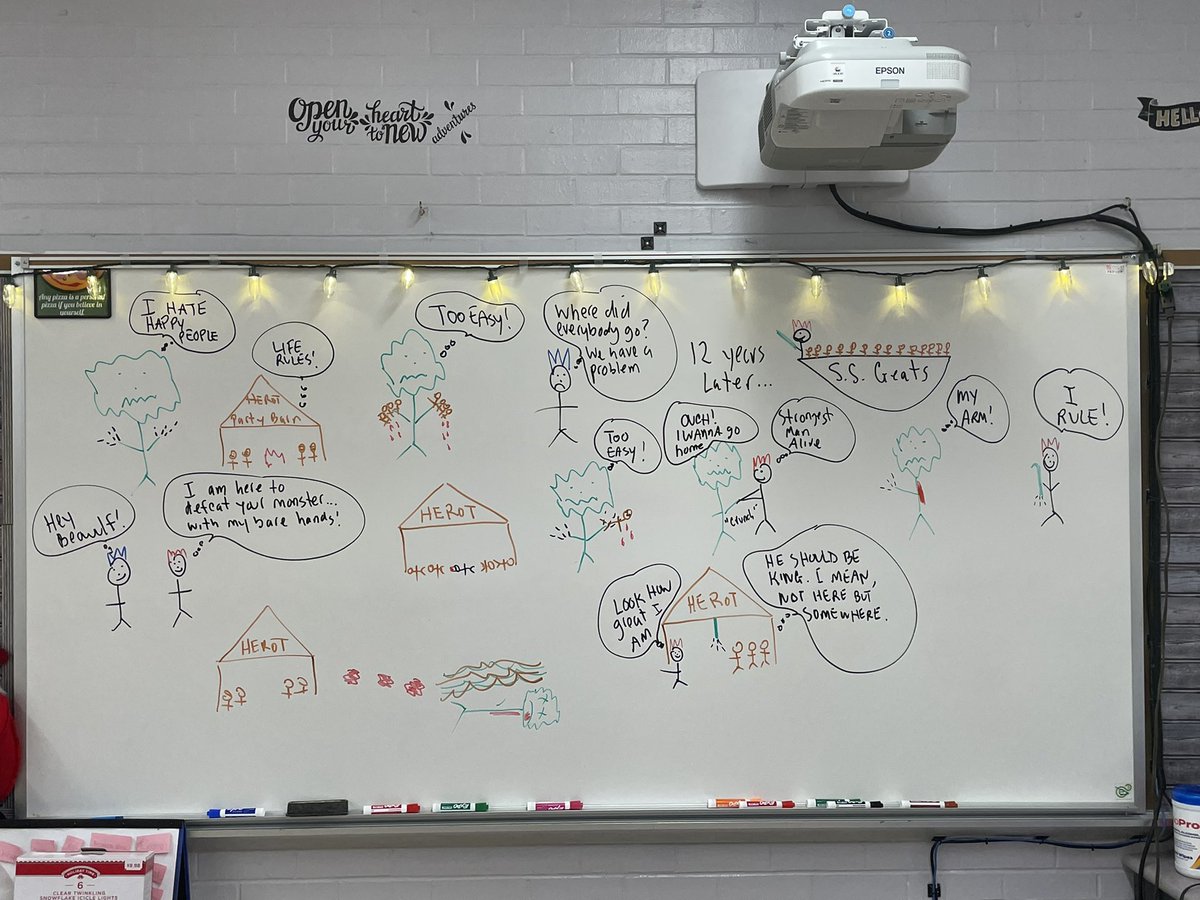 Open
your
heart
to new
adventures
EPSON
HELLO
Any pizza is a personal
pizza if you believe in
yourself.
I HATE
HAPPY
PEOPLE
LIFE
RULES!
HEROT
Party Barn
TOO EASY!
Where did
everybody go?
We have a
problem
12 years
Later...
S.S. Geats
Hey
Beawlf!
I am here to
defeat your monster...
with my bare hands!
HEROT
TOO
EASY!
OUCH!
I WANNA GO
home
"crunch"
Strongest
Man
Alive
MY
ARM!
I
RULE!
HEROT
LOOK HOW
great I
AM
HEROT
HE SHOULD BE
KING. I MEAN,
NOT HERE BUT
SOMEWHERE.
HOLIDAY TIME
6
CLEAR TWINKLING
SNOWFLAKE ICICLE LIGHTS